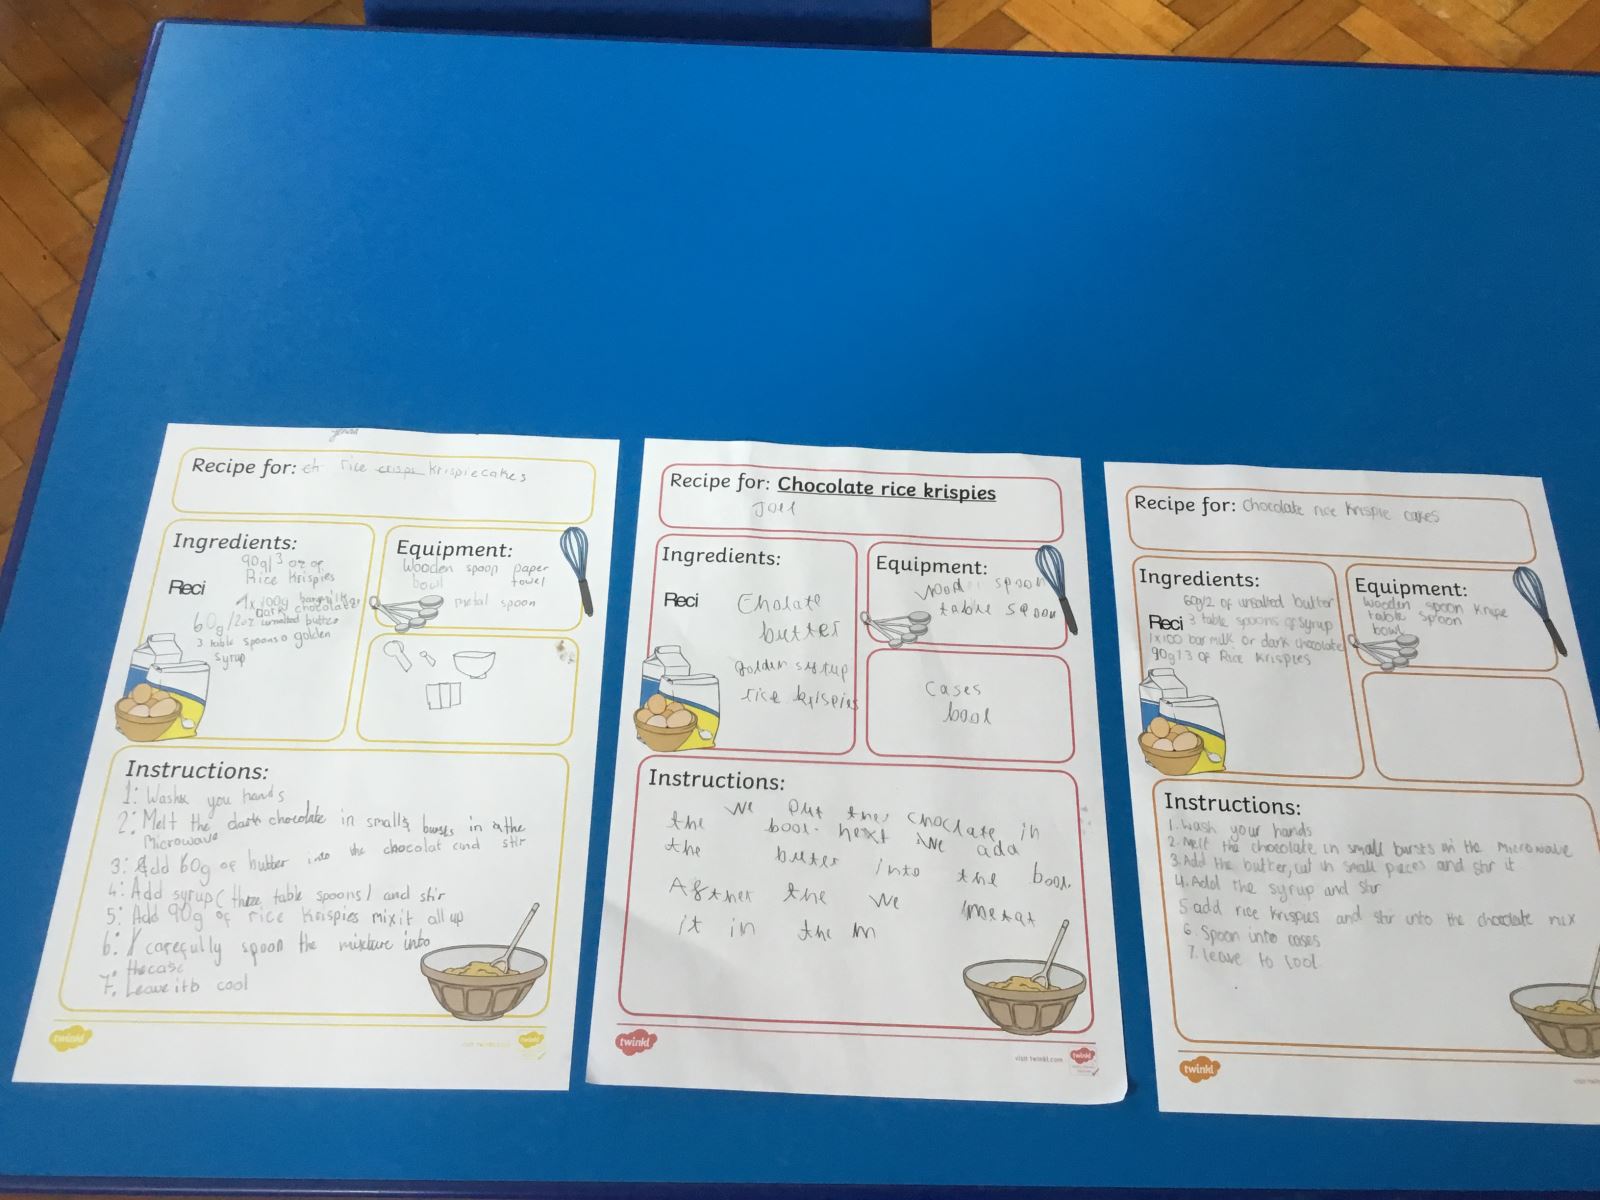 Recipe for: ch rice crisps krispiecakes
Ingredients:
90g/3 oz of
Rice Krispies
Reci
1x100g bar milk or
Dark chocolate
60g/2oz unsalted butter
3 table spoons o golden
syrup
Equipment:
Wooden spoon paper
bowl towel
metal spoon
Instructions:
1: Wash you hands
2: Melt the dark chocolate in small bursts in the
Microwave
3: Add 60g of butter into the chocolat and stir
4: Add syrup (three table spoons) and stir
5: Add 90g of rice Krispies mix it all up
6: carefully spoon the mixture into
the case
7. Leave it to cool
twinkl
twinkl
Recipe for: Chocolate rice krispies
Joel
Ingredients:
Reci
Cholate
butter
golden syrup
rice krispies
Equipment:
wooden spoon
table spoon
cases
bool
Instructions:
We put the choclate in
the bool. next we add
the butter into the bool.
After the we
it in the m
twinkl
visit twinkl.com
twinkl
Recipe for: Chocolate rice krispie cakes
Ingredients:
60g/2 of unsalted butter
Reci 3 table spoons of syrup
1x100 bar milk or dark chocolate
90g 1 3 of Rice Krispies
Equipment:
Wooden spoon knife
table spoon
bowl
Instructions:
1. Wash your hands
2. Melt the chocolate in small bursts in the microwave
3. Add the butter, cut in small pieces and stir it
4. Add the syrup and stir
5 add rice krispies and stir into the chocolate mix
6. Spoon into cases
7. leave to cool
twinkl